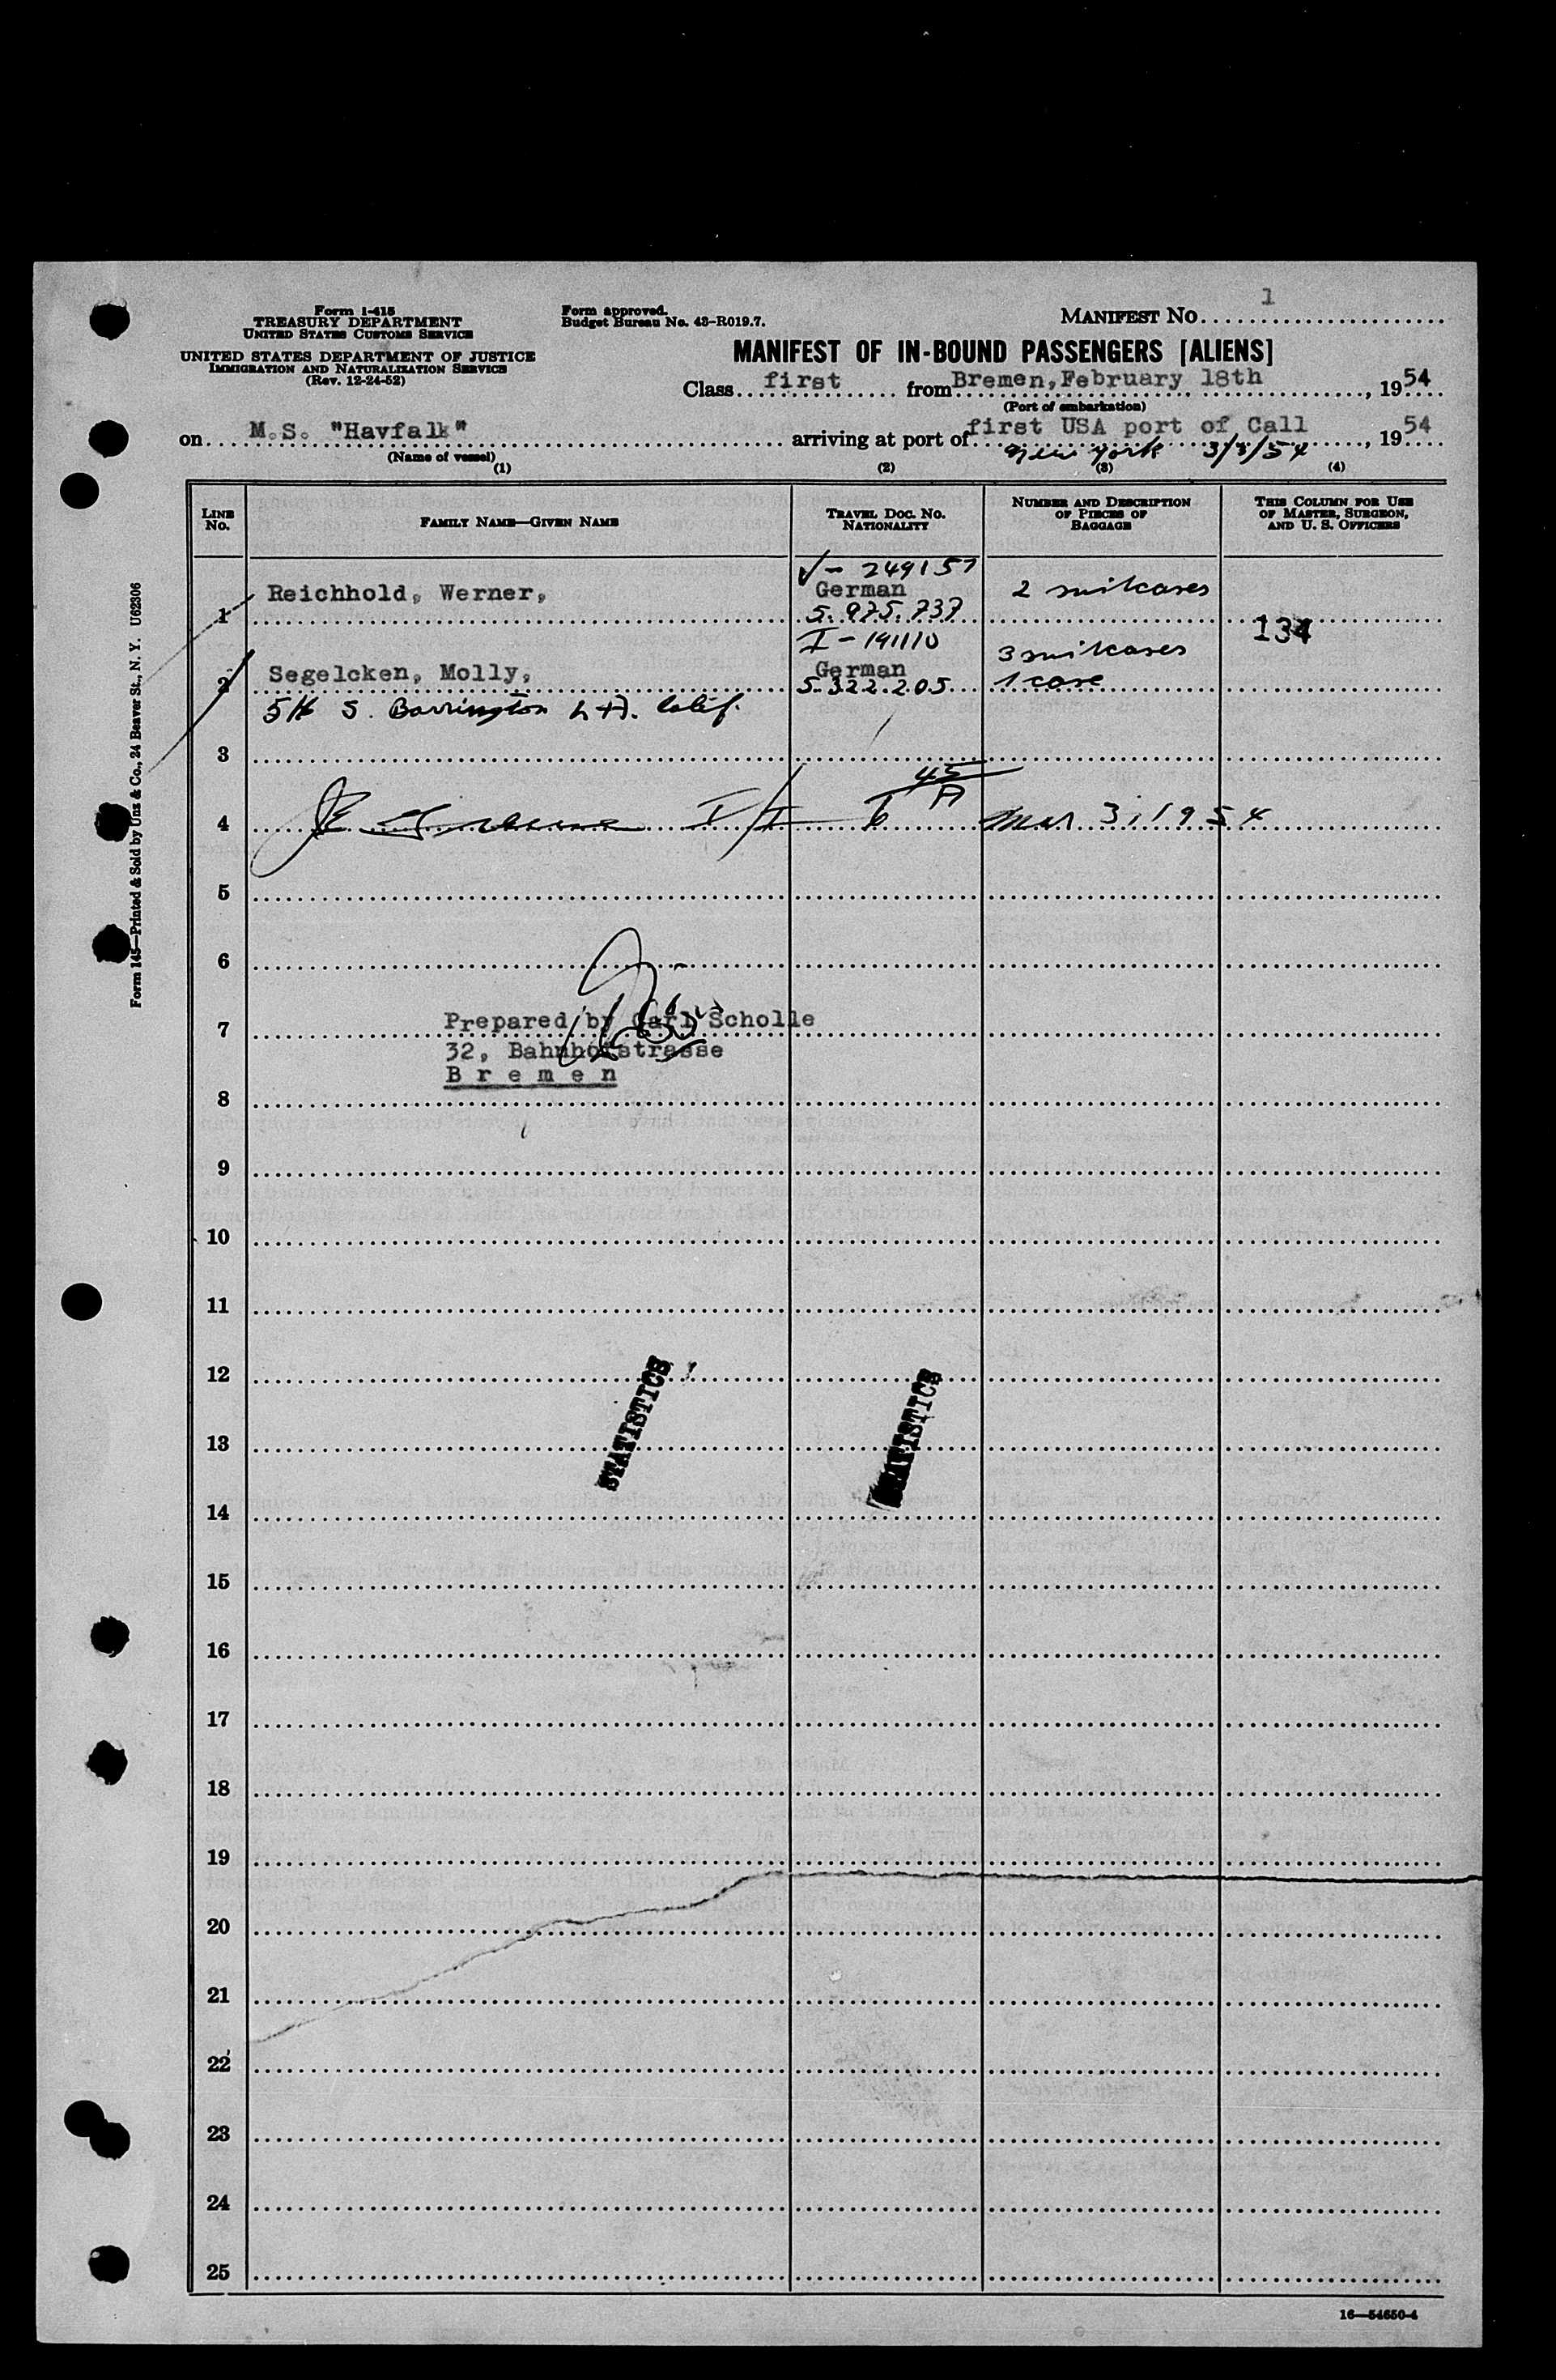 Form I-415
TREASURY DEPARTMENT
UNITED STATES CUSTOMS SERVICE
UNITED STATES DEPARTMENT OF JUSTICE
IMMIGRATION AND NATURALIZATION SERVICE
(Rev. 12-24-52)
Form approved.
Budget Bureau No. 43-R019.7.
MANIFEST NO. 1
MANIFEST OF IN-BOUND PASSENGERS [ALIENS]
Class first from Bremen, February 18th, 1954
(Port of embarkation)
on M.S. "Havfalk" arriving at port of first USA port of Call, 1954
(Name of vessel) New York 3/3/54
(1) (2) (3) (4)
LINE NO. FAMILY NAME—GIVEN NAME TRAVEL DOC. NO. NATIONALITY NUMBER AND DESCRIPTION OF PIECES OF BAGGAGE THIS COLUMN FOR USE OF MASTER, SURGEON, AND U. S. OFFICERS
V - 249157
1 Reichhold, Werner, German 2 suitcases
5.975.737
134
I - 191110
3 suitcases
2 Segelcken, Molly, German
5.322.205 1 case
S. Barrington L.A. Calif.
3
45
A
4 I/I 6 Mar 3, 1954
5
6
7 Prepared by Carl Scholle
32, Bahnhofstrasse
Bremen
8
9
10
11
12
13
STATISTICS STATISTICS
14
15
16
17
18
19
20
21
22
23
24
25
16—54650-4
Form 145—Printed & Sold by Unz & Co., 24 Beaver St., N. Y. U62306